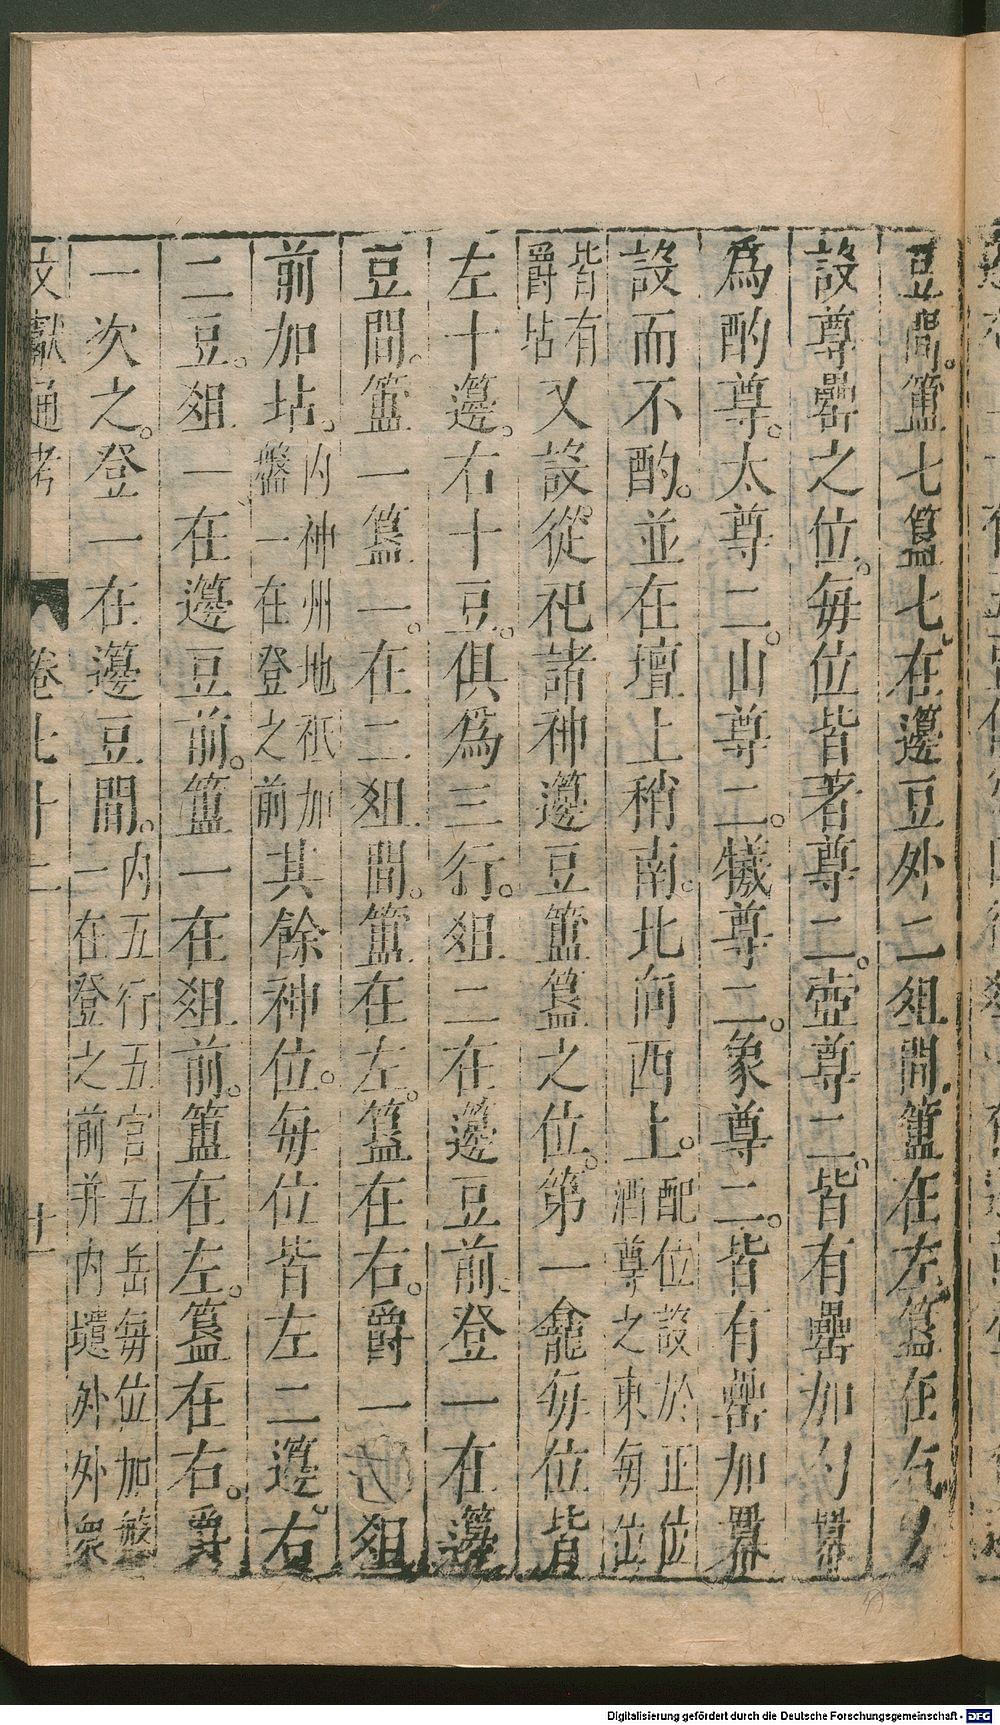 豆間簠七簋七在籩豆外二俎間簠在左簋在右又
設尊罍之位每位皆著尊二壺尊二皆有罍加勺羃
為酌尊太尊二山尊二犧尊二象尊二皆有罍加羃
設而不酌並在壇上稍南北向西上配位設於正位
酒尊之東每位
皆有
爵坫又設從祀諸神籩豆簠簋之位第一龕每位皆
左十籩右十豆俱為三行俎二在籩豆前登一在籩
豆間簠一簋一在二俎間簠在左簋在右爵一 俎
前加坫內神州地祇加
盤一在登之前其餘神位每位皆左二籩右
二豆俎一在籩豆前簠一在俎前簠在左簋在右爵
一次之登一在籩豆間內五行五官五岳每位加盤
一在登之前并內壝外外衆
文獻通考 卷七十二 廿一
Digitalisierung gefördert durch die Deutsche Forschungsgemeinschaft - DFG